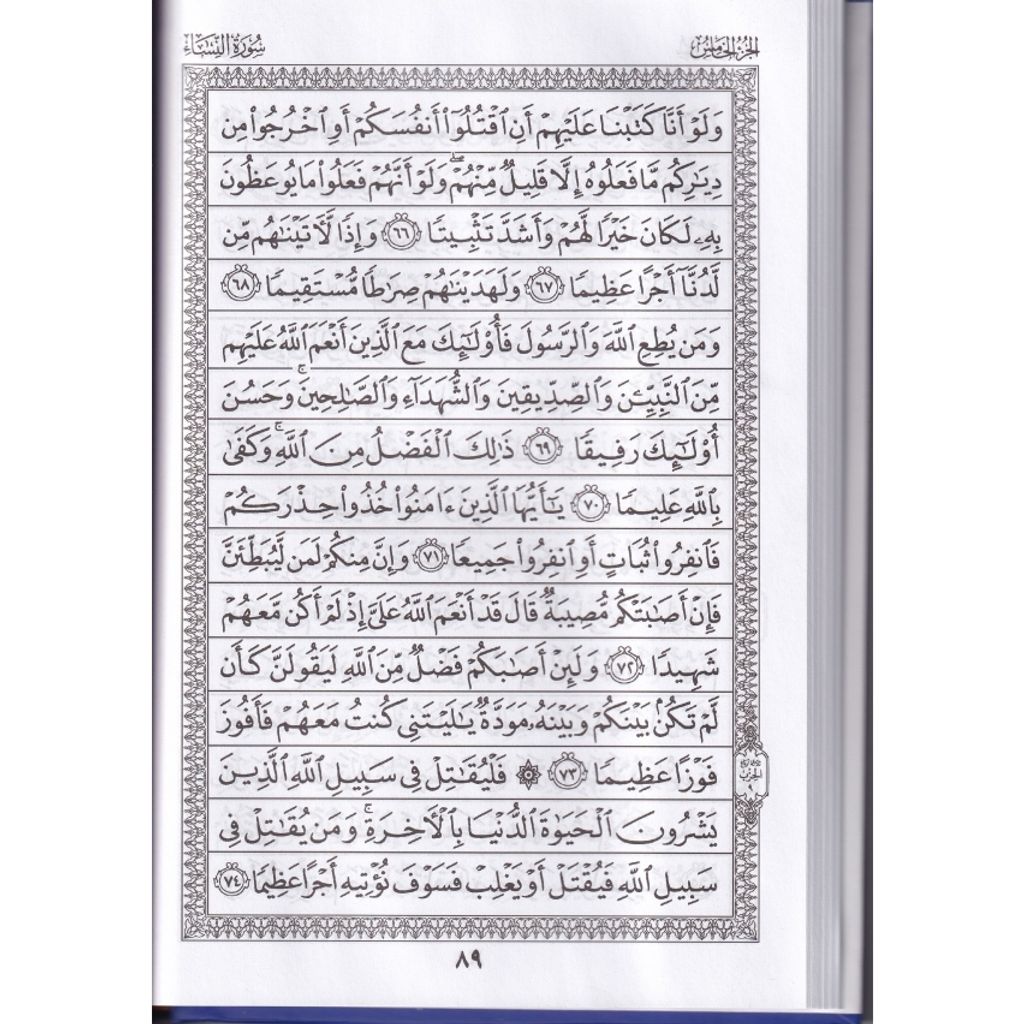 الجزء الخامس
سورة النساء
وَلَوْ أَنَّا كَتَبْنَا عَلَيْهِمْ أَنِ ٱقْتُلُوٓا۟ أَنفُسَكُمْ أَوِ ٱخْرُجُوا۟ مِن
دِيَـٰرِكُم مَّا فَعَلُوهُ إِلَّا قَلِيلٌ مِّنْهُمْ ۖ وَلَوْ أَنَّهُمْ فَعَلُوا۟ مَا يُوعَظُونَ
بِهِۦ لَكَانَ خَيْرًا لَّهُمْ وَأَشَدَّ تَثْبِيتًا ٦٦ وَإِذًا لَّـَٔاتَيْنَـٰهُم مِّن
لَّدُنَّآ أَجْرًا عَظِيمًا ٦٧ وَلَهَدَيْنَـٰهُمْ صِرَٰطًا مُّسْتَقِيمًا ٦٨
وَمَن يُطِعِ ٱللَّهَ وَٱلرَّسُولَ فَأُو۟لَـٰٓئِكَ مَعَ ٱلَّذِينَ أَنْعَمَ ٱللَّهُ عَلَيْهِم
مِّنَ ٱلنَّبِيِّـۧنَ وَٱلصِّدِّيقِينَ وَٱلشُّهَدَآءِ وَٱلصَّـٰلِحِينَ ۚ وَحَسُنَ
أُو۟لَـٰٓئِكَ رَفِيقًا ٦٩ ذَٰلِكَ ٱلْفَضْلُ مِنَ ٱللَّهِ ۚ وَكَفَىٰ
بِٱللَّهِ عَلِيمًا ٧٠ يَـٰٓأَيُّهَا ٱلَّذِينَ ءَامَنُوا۟ خُذُوا۟ حِذْرَكُمْ
فَٱنفِرُوا۟ ثُبَاتٍ أَوِ ٱنفِرُوا۟ جَمِيعًا ٧١ وَإِنَّ مِنكُمْ لَمَن لَّيُبَطِّئَنَّ
فَإِنْ أَصَـٰبَتْكُم مُّصِيبَةٌ قَالَ قَدْ أَنْعَمَ ٱللَّهُ عَلَىَّ إِذْ لَمْ أَكُن مَّعَهُمْ
شَهِيدًا ٧٢ وَلَئِنْ أَصَـٰبَكُمْ فَضْلٌ مِّنَ ٱللَّهِ لَيَقُولَنَّ كَأَن
لَّمْ تَكُنۢ بَيْنَكُمْ وَبَيْنَهُۥ مَوَدَّةٌ يَـٰلَيْتَنِى كُنتُ مَعَهُمْ فَأَفُوزَ
فَوْزًا عَظِيمًا ٧٣ ۞ فَلْيُقَـٰتِلْ فِى سَبِيلِ ٱللَّهِ ٱلَّذِينَ
يَشْرُونَ ٱلْحَيَوٰةَ ٱلدُّنْيَا بِٱلْـَٔاخِرَةِ ۚ وَمَن يُقَـٰتِلْ فِى
سَبِيلِ ٱللَّهِ فَيُقْتَلْ أَوْ يَغْلِبْ فَسَوْفَ نُؤْتِيهِ أَجْرًا عَظِيمًا ٧٤
الحزب
٩
٨٩